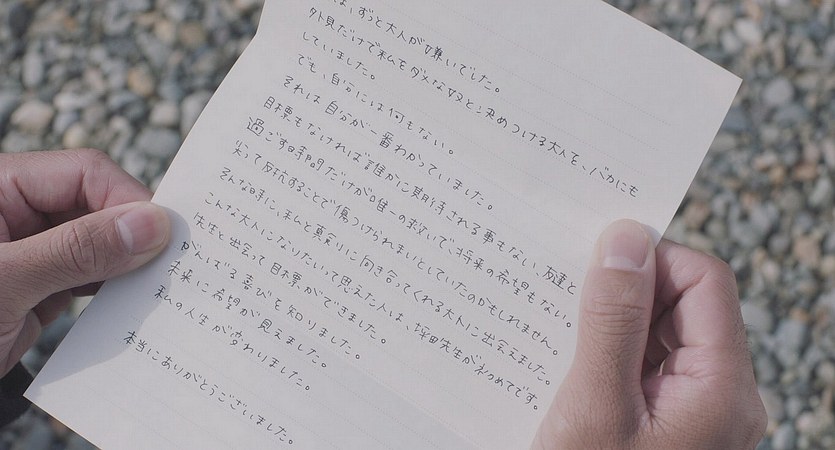 は、ずっと大人が嫌いでした。
外見だけで私をダメな奴と決めつける大人を、バカにも
していました。
でも、自分には何もない。
それは自分が一番わかっていました。
目標もなければ誰かに期待される事もない、友達と
過ごす時間だけが唯一の救いで、将来の希望もない。
笑って反抗することで傷つけられまいとしていたのかもしれません。
そんな時に、私と真剣に向き合ってくれる大人に出会えました。
こんな大人になりたいって思えた人は、坪田先生がはじめてです。
先生と出会って目標ができました。
がんばる喜びを知りました。
未来に希望が見えました。
私の人生が変わりました。
本当にありがとうございました。